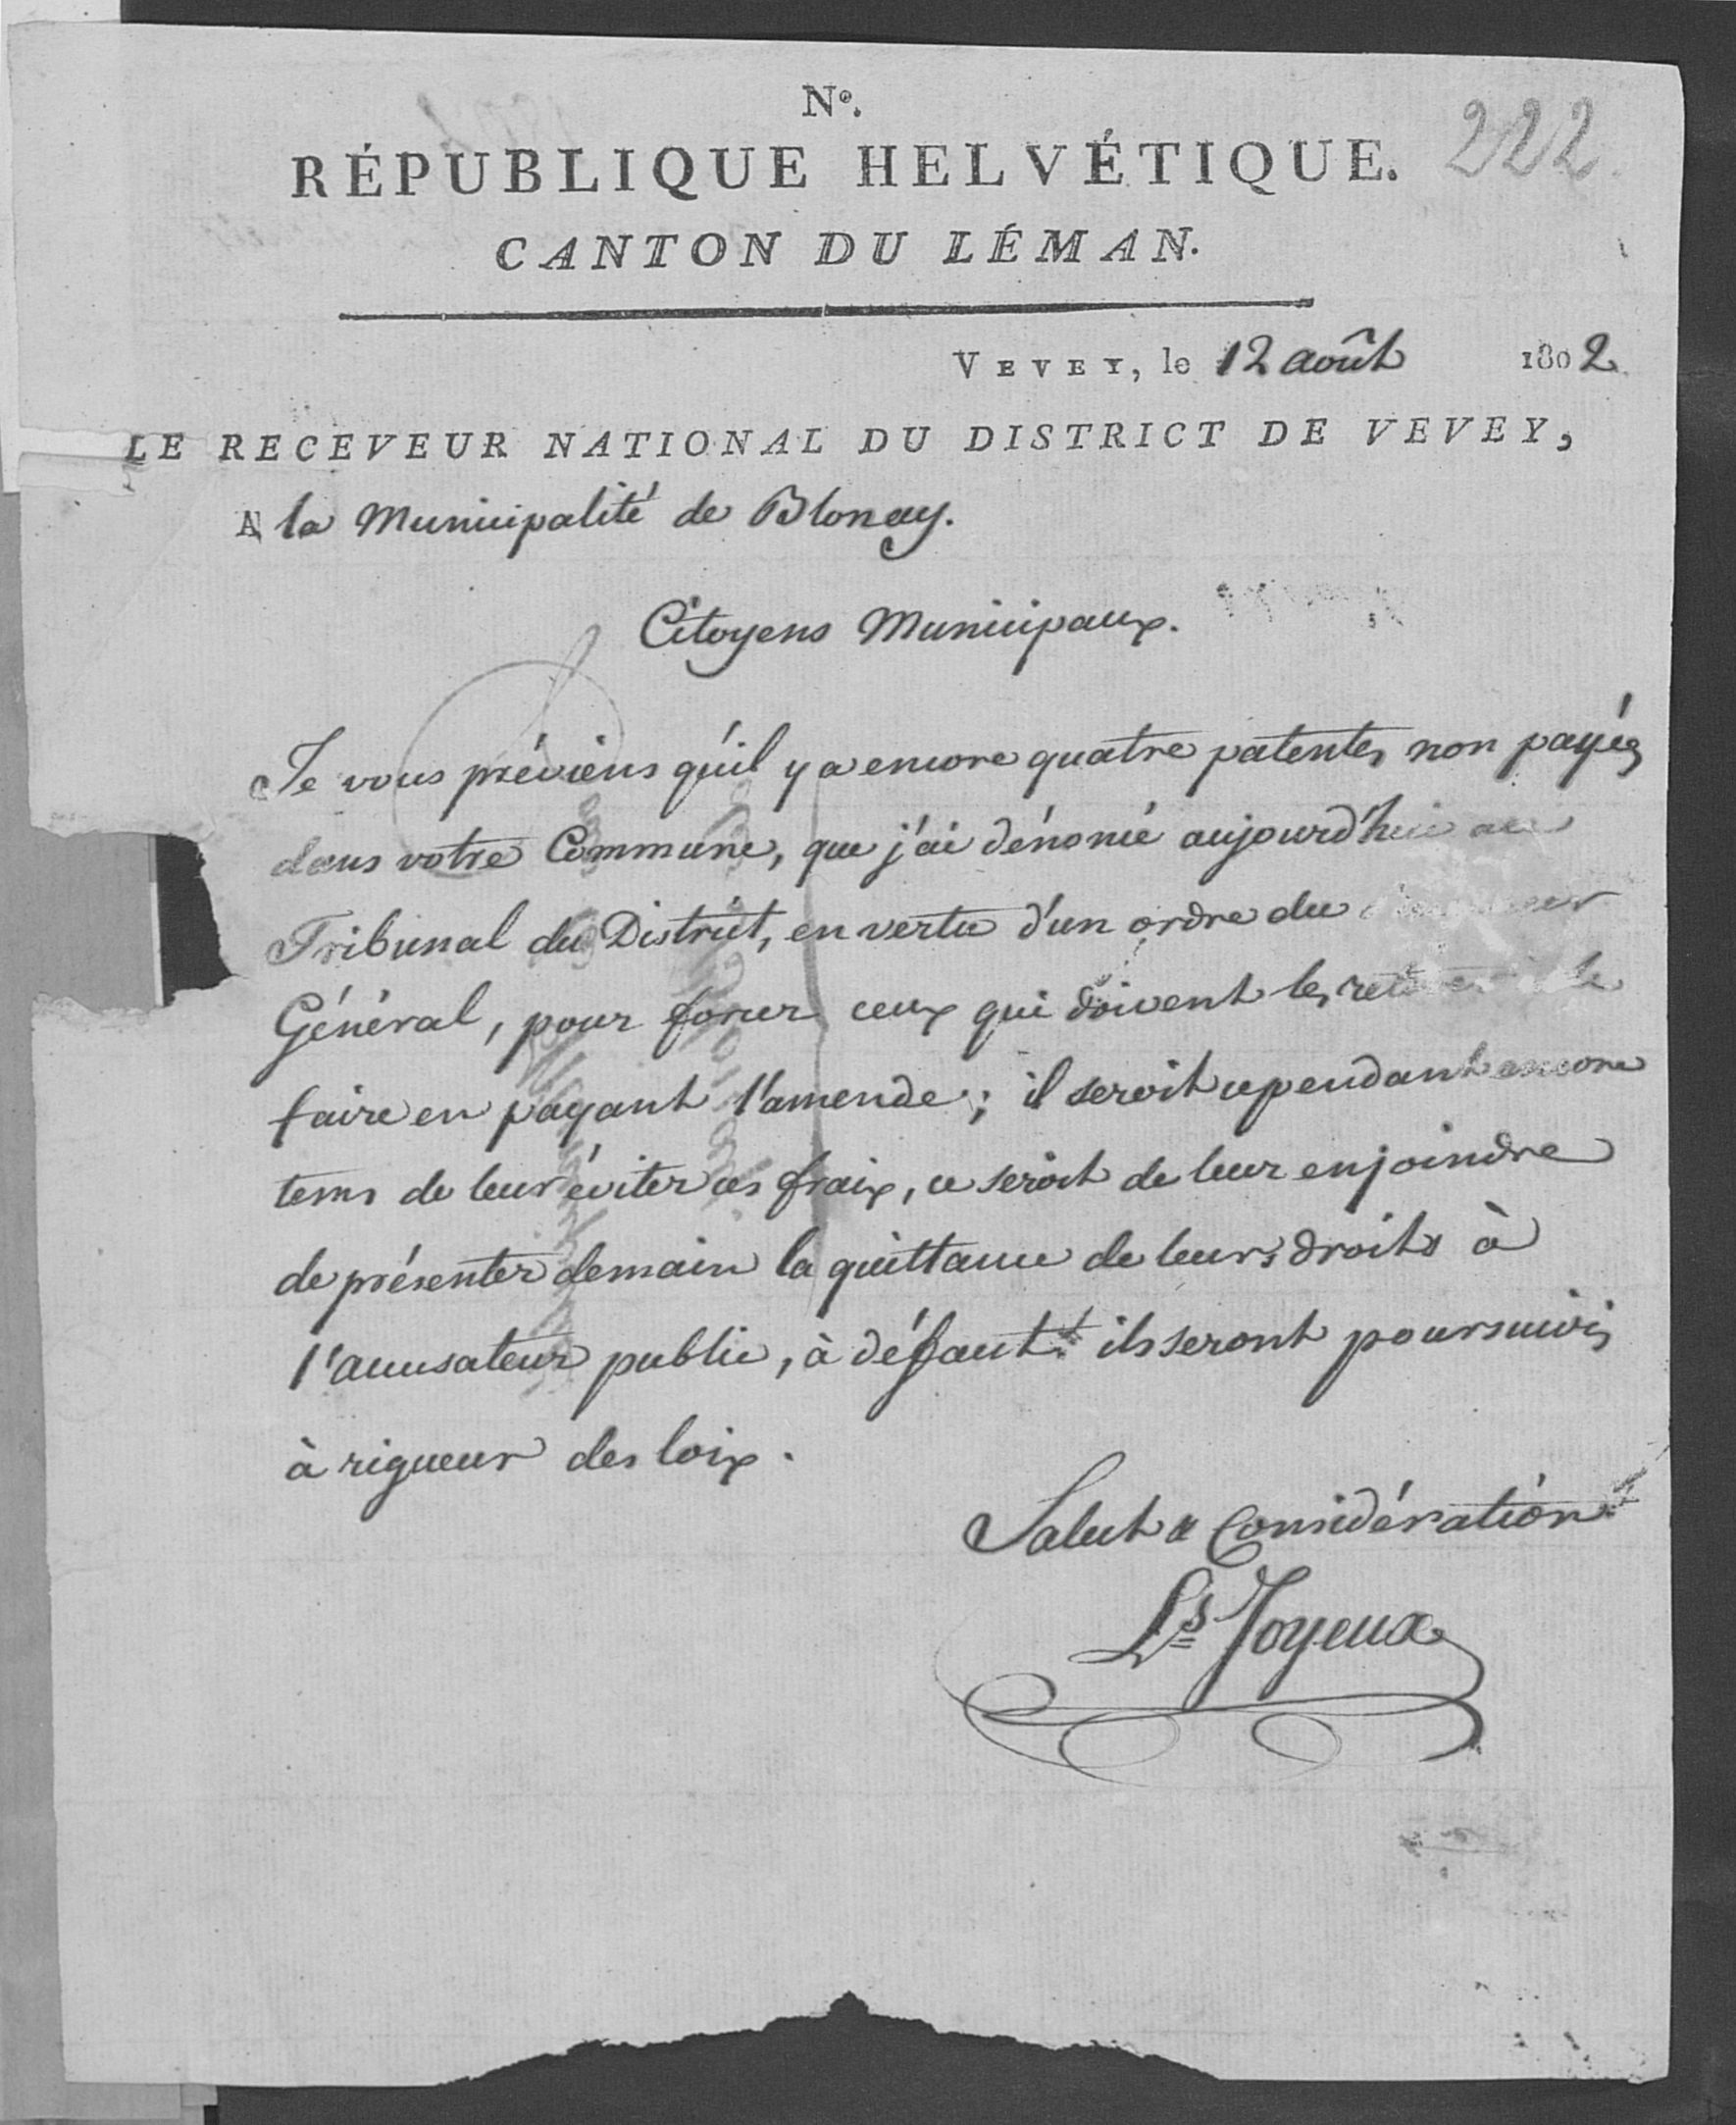 Nº.
222
RÉPUBLIQUE HELVÉTIQUE.
CANTON DU LÉMAN.
VEVEY, le 12 août 1802
LE RECEVEUR NATIONAL DU DISTRICT DE VEVEY,
A la Municipalité de Blonay.
Citoyens Municipaux.
Je vous préviens qu'il y a encore quatre patentes non payées
dans votre Commune, que j'ai dénoncé aujourd'hui au
Tribunal du District, en vertu d'un ordre du
Général, pour forcer ceux qui doivent les retirer à le
faire en payant l'amende; il seroit cependant encore
tems de leur éviter ces fraix, ce seroit de leur enjoindre
de présenter demain la quittance de leurs droits à
l'accusateur public, à défaut ils seront poursuivis
à rigueur des loix.
Salut & Considération
Ls Joyeux